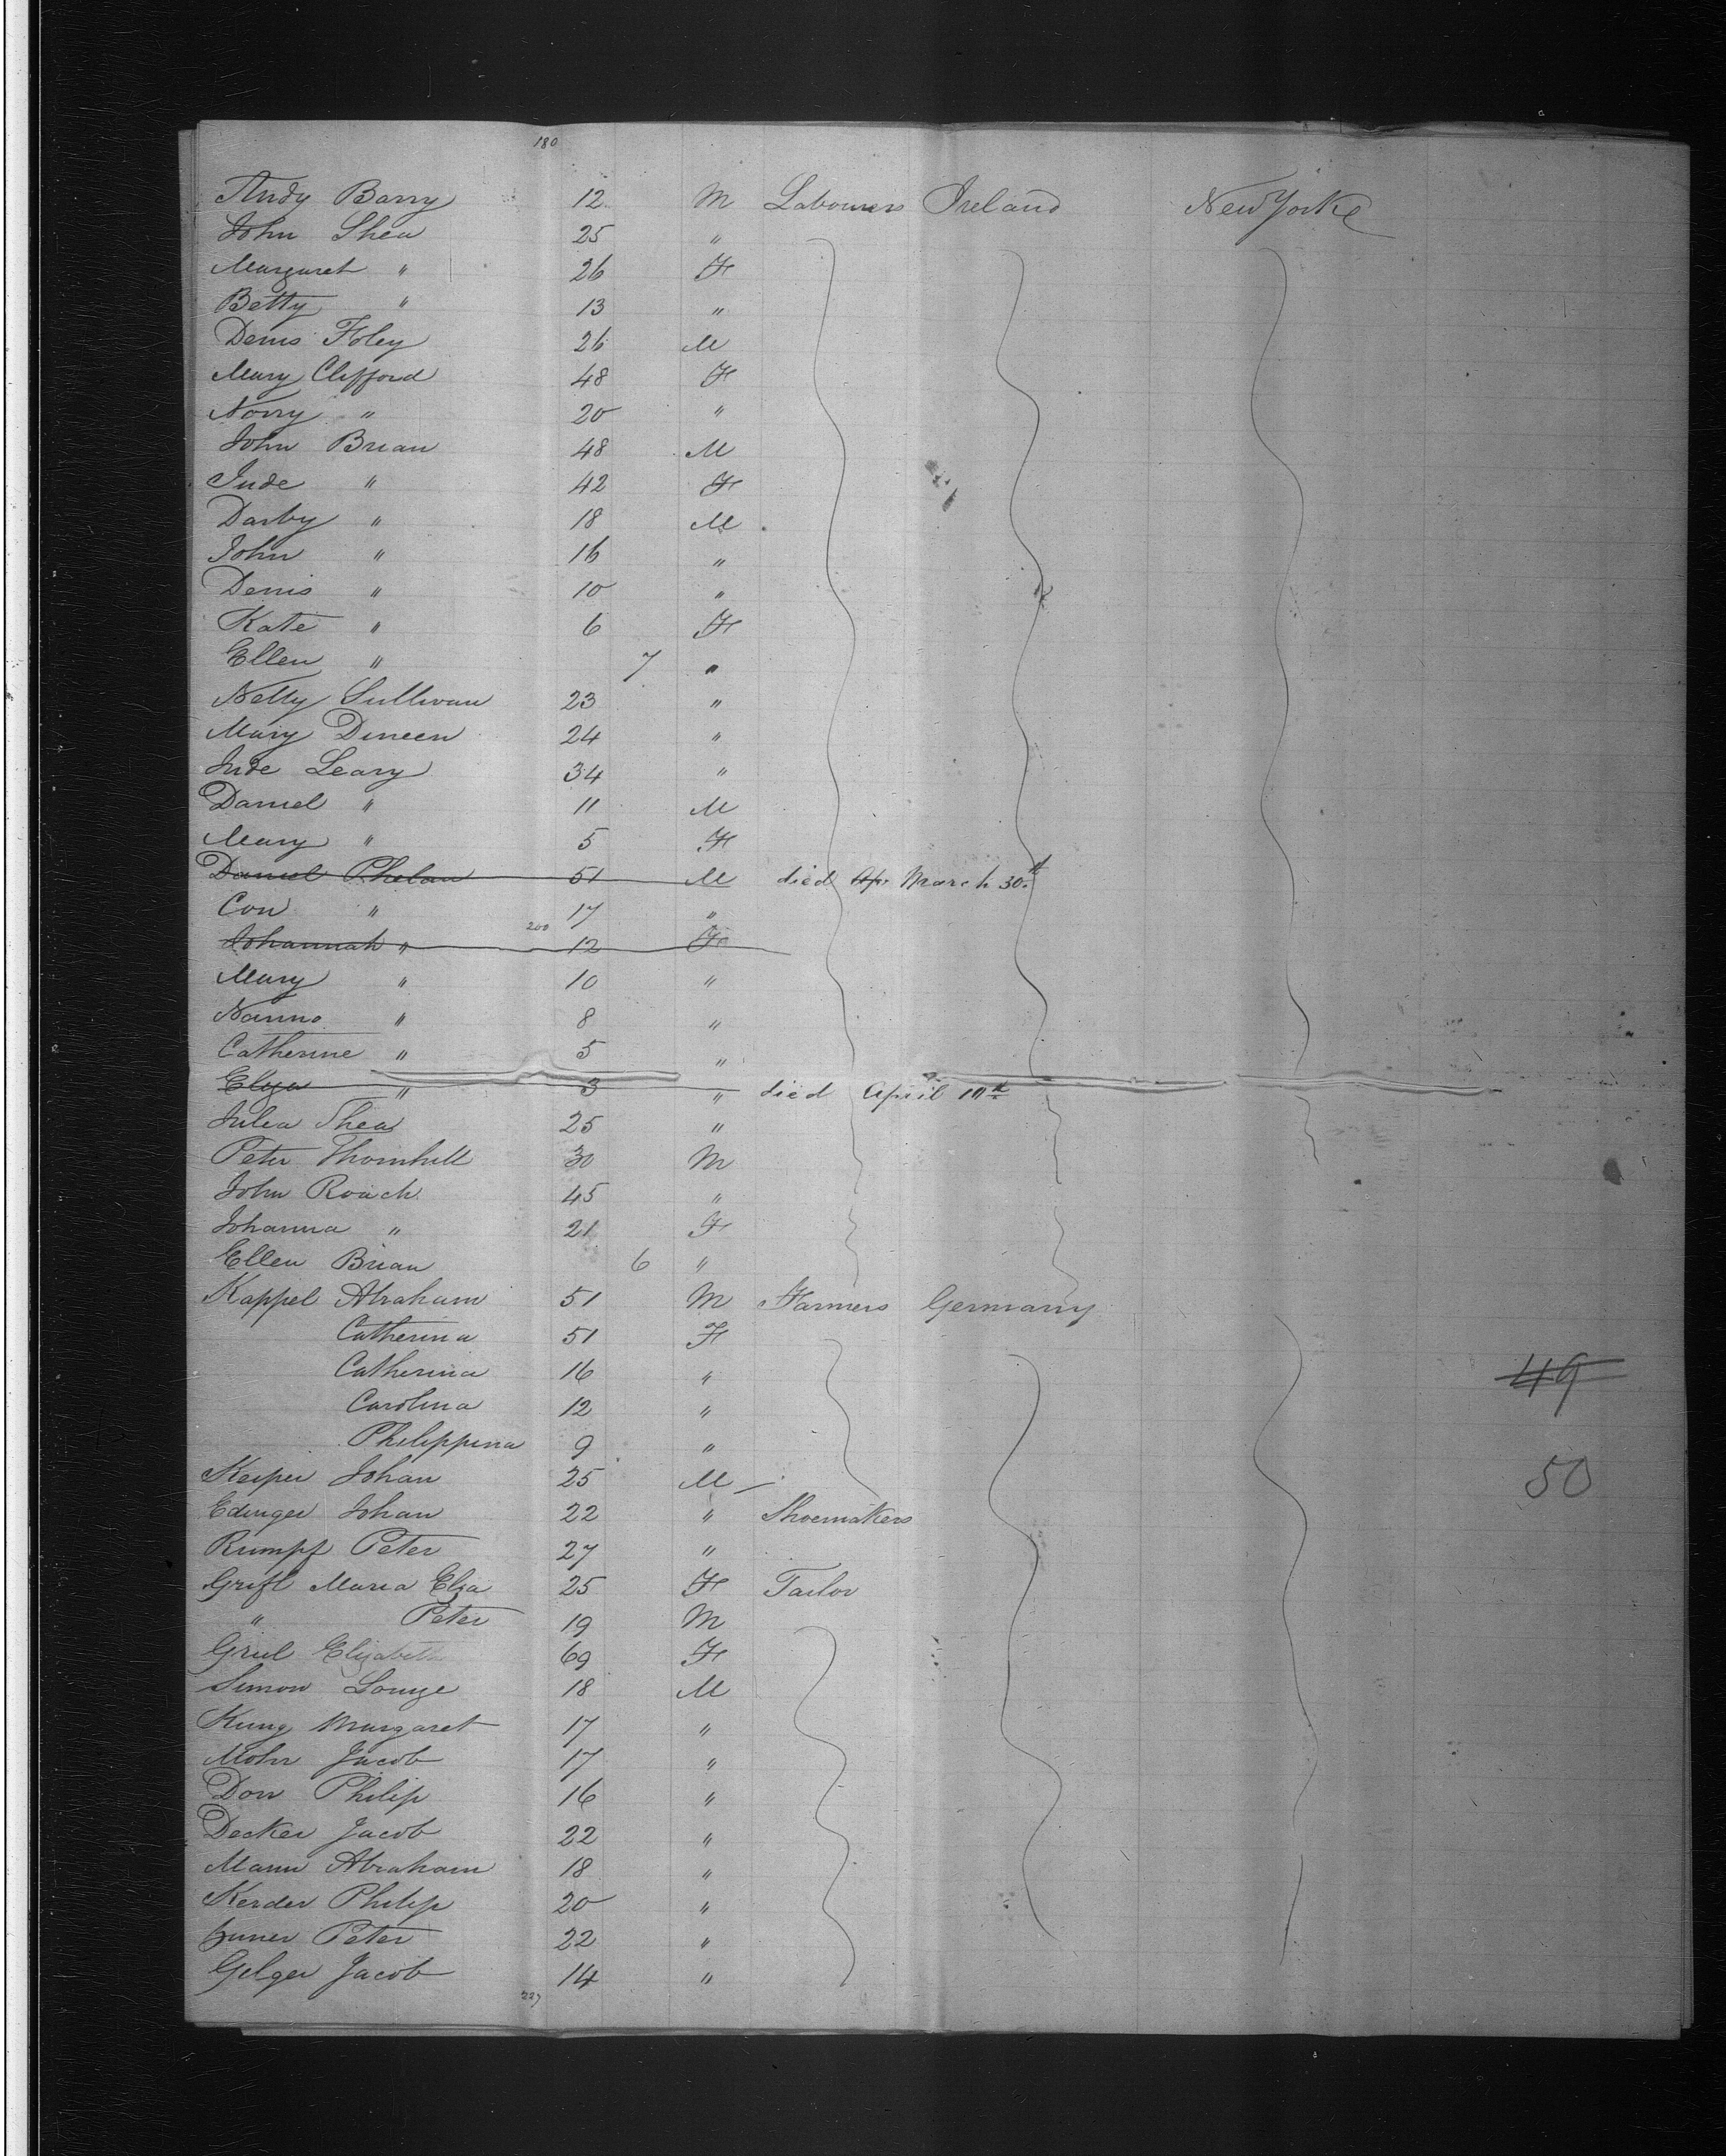 180
Andy Barry 12 M Labourers Ireland New Yorke
John Shea 25 "
Margaret " 26 F
Betty " 13 "
Denis Foley 26 M
Mary Clifford 48 F
Norry " 20 "
John Brian 48 M
Jude " 42 F
Darby " 18 M
John " 16 "
Denis " 10 "
Kate " 6 F
Ellen " 7 "
Nelly Sullivan 23 "
Mary Dineen 24 "
Jude Leary 34 "
Daniel " 11 M
Mary " 5 F
Daniel Phelan 51 M died Ap March 30th
Con " 17 "
200
Johannah " 12 F
Mary " 10 "
Nanno " 8 "
Catherine " 5 "
Eliza " 3 " died April
Julia Shea 25 "
Peter Thornhill 30 M
John Roach 45 "
Johanna " 21 F
Ellen Brian 6 "
Kappel Abraham 51 M Farmers Germany
Catherina 51 F
Catherina 16 " 49
Carolina 12 "
Philippina 9 "
Keiper Johan 25 M 50
Edinger Johan 22 " Shoemakers
Rumpf Peter 27 "
Maria Eliza 25 F Tailor
" Peter 19 M
Elizabeth 69 F
Simon 18 M
Margaret 17 "
Mohr Jacob 17 "
Philip 16 "
Decker Jacob 22 "
Mann Abraham 18 "
Philip 20 "
Peter 22 "
Jacob 14 "
227